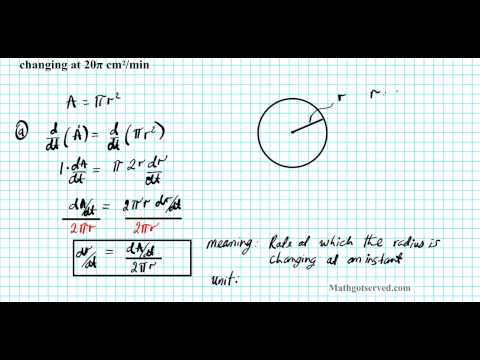 changing at 20π cm²/min
A = πr²
r
r
ⓐ d/dt (A) = d/dt (πr²)
1 · dA/dt = π 2r dr/dt
dA/dt = 2πr dr/dt
2πr 2πr
dr/dt = dA/dt / 2πr
meaning: Rate at which the radius is
changing at an instant
unit:
Mathgotserved.com